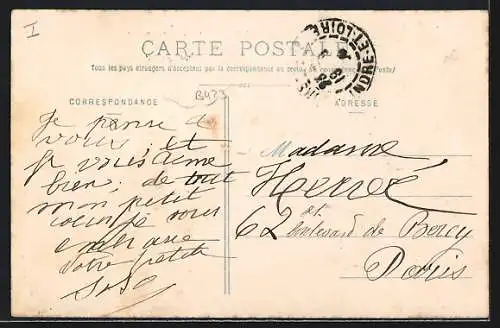 I
CARTE POSTALE
Tous les pays étrangers n'acceptent pas la correspondance au recto
B433
CORRESPONDANCE
ADRESSE
INDRE-ET-LOIRE
Je pense à
vous, et
je vous aime
bien, de tout
mon petit
coeur je vous
embrasse
votre petite
Madame
Hervé
62 boulevard de Bercy
Paris